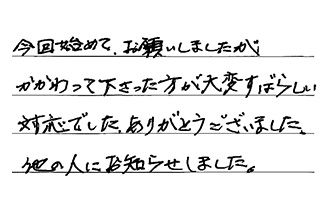 今回始めて、お願いしましたが
かかわって下さった方が大変すばらしい
対応でした。ありがとうございました。
他の人にお知らせしました。